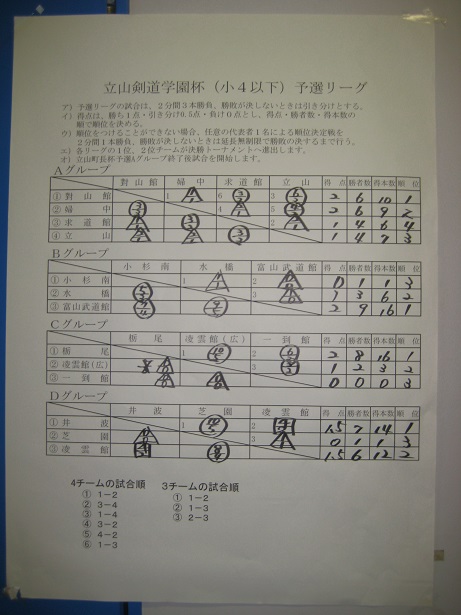 立山剣道学園杯（小４以下）予選リーグ
ア）予選リーグの試合は、２分間３本勝負、勝敗が決しないときは引き分けとする。
イ）得点は、勝ち１点・引分け0.5点・負け０点とし、得点・勝者数・得本数の
順で順位を決める。
ウ）順位をつけることができない場合、任意の代表者１名による順位決定戦を
２分間１本勝負、勝敗が決しないときは延長無制限で勝負の決するまで行う。
エ）各リーグの１位、２位チームが決勝トーナメントへ進出します。
オ）立山町長杯予選Aグループ終了後試合を開始します。
Ａグループ
對山館 婦中 求道館 立山 得点 勝者数 得本数 順位
①對山館 1 6 3 2 6 10 1
②婦中 4 5 2 6 9 2
③求道館 2 1 4 6 4
④立山 1 4 7 3
Ｂグループ
小杉南 水橋 富山武道館 得点 勝者数 得本数 順位
①小杉南 1 2 0 1 1 3
②水橋 3 1 3 6 2
③富山武道館 2 9 16 1
Ｃグループ
栃尾 凌雲館(広) 一到館 得点 勝者数 得本数 順位
①栃尾 1 2 2 8 16 1
②凌雲館(広) 3 1 2 3 2
③一到館 0 0 0 3
Ｄグループ
井波 芝園 凌雲館 得点 勝者数 得本数 順位
①井波 1 2 1.5 7 14 1
②芝園 3 0 1 1 3
③凌雲館 1.5 6 12 2
4チームの試合順 3チームの試合順
① 1－2 ① 1－2
② 3－4 ② 1－3
③ 1－4 ③ 2－3
④ 3－2
⑤ 4－2
⑥ 1－3